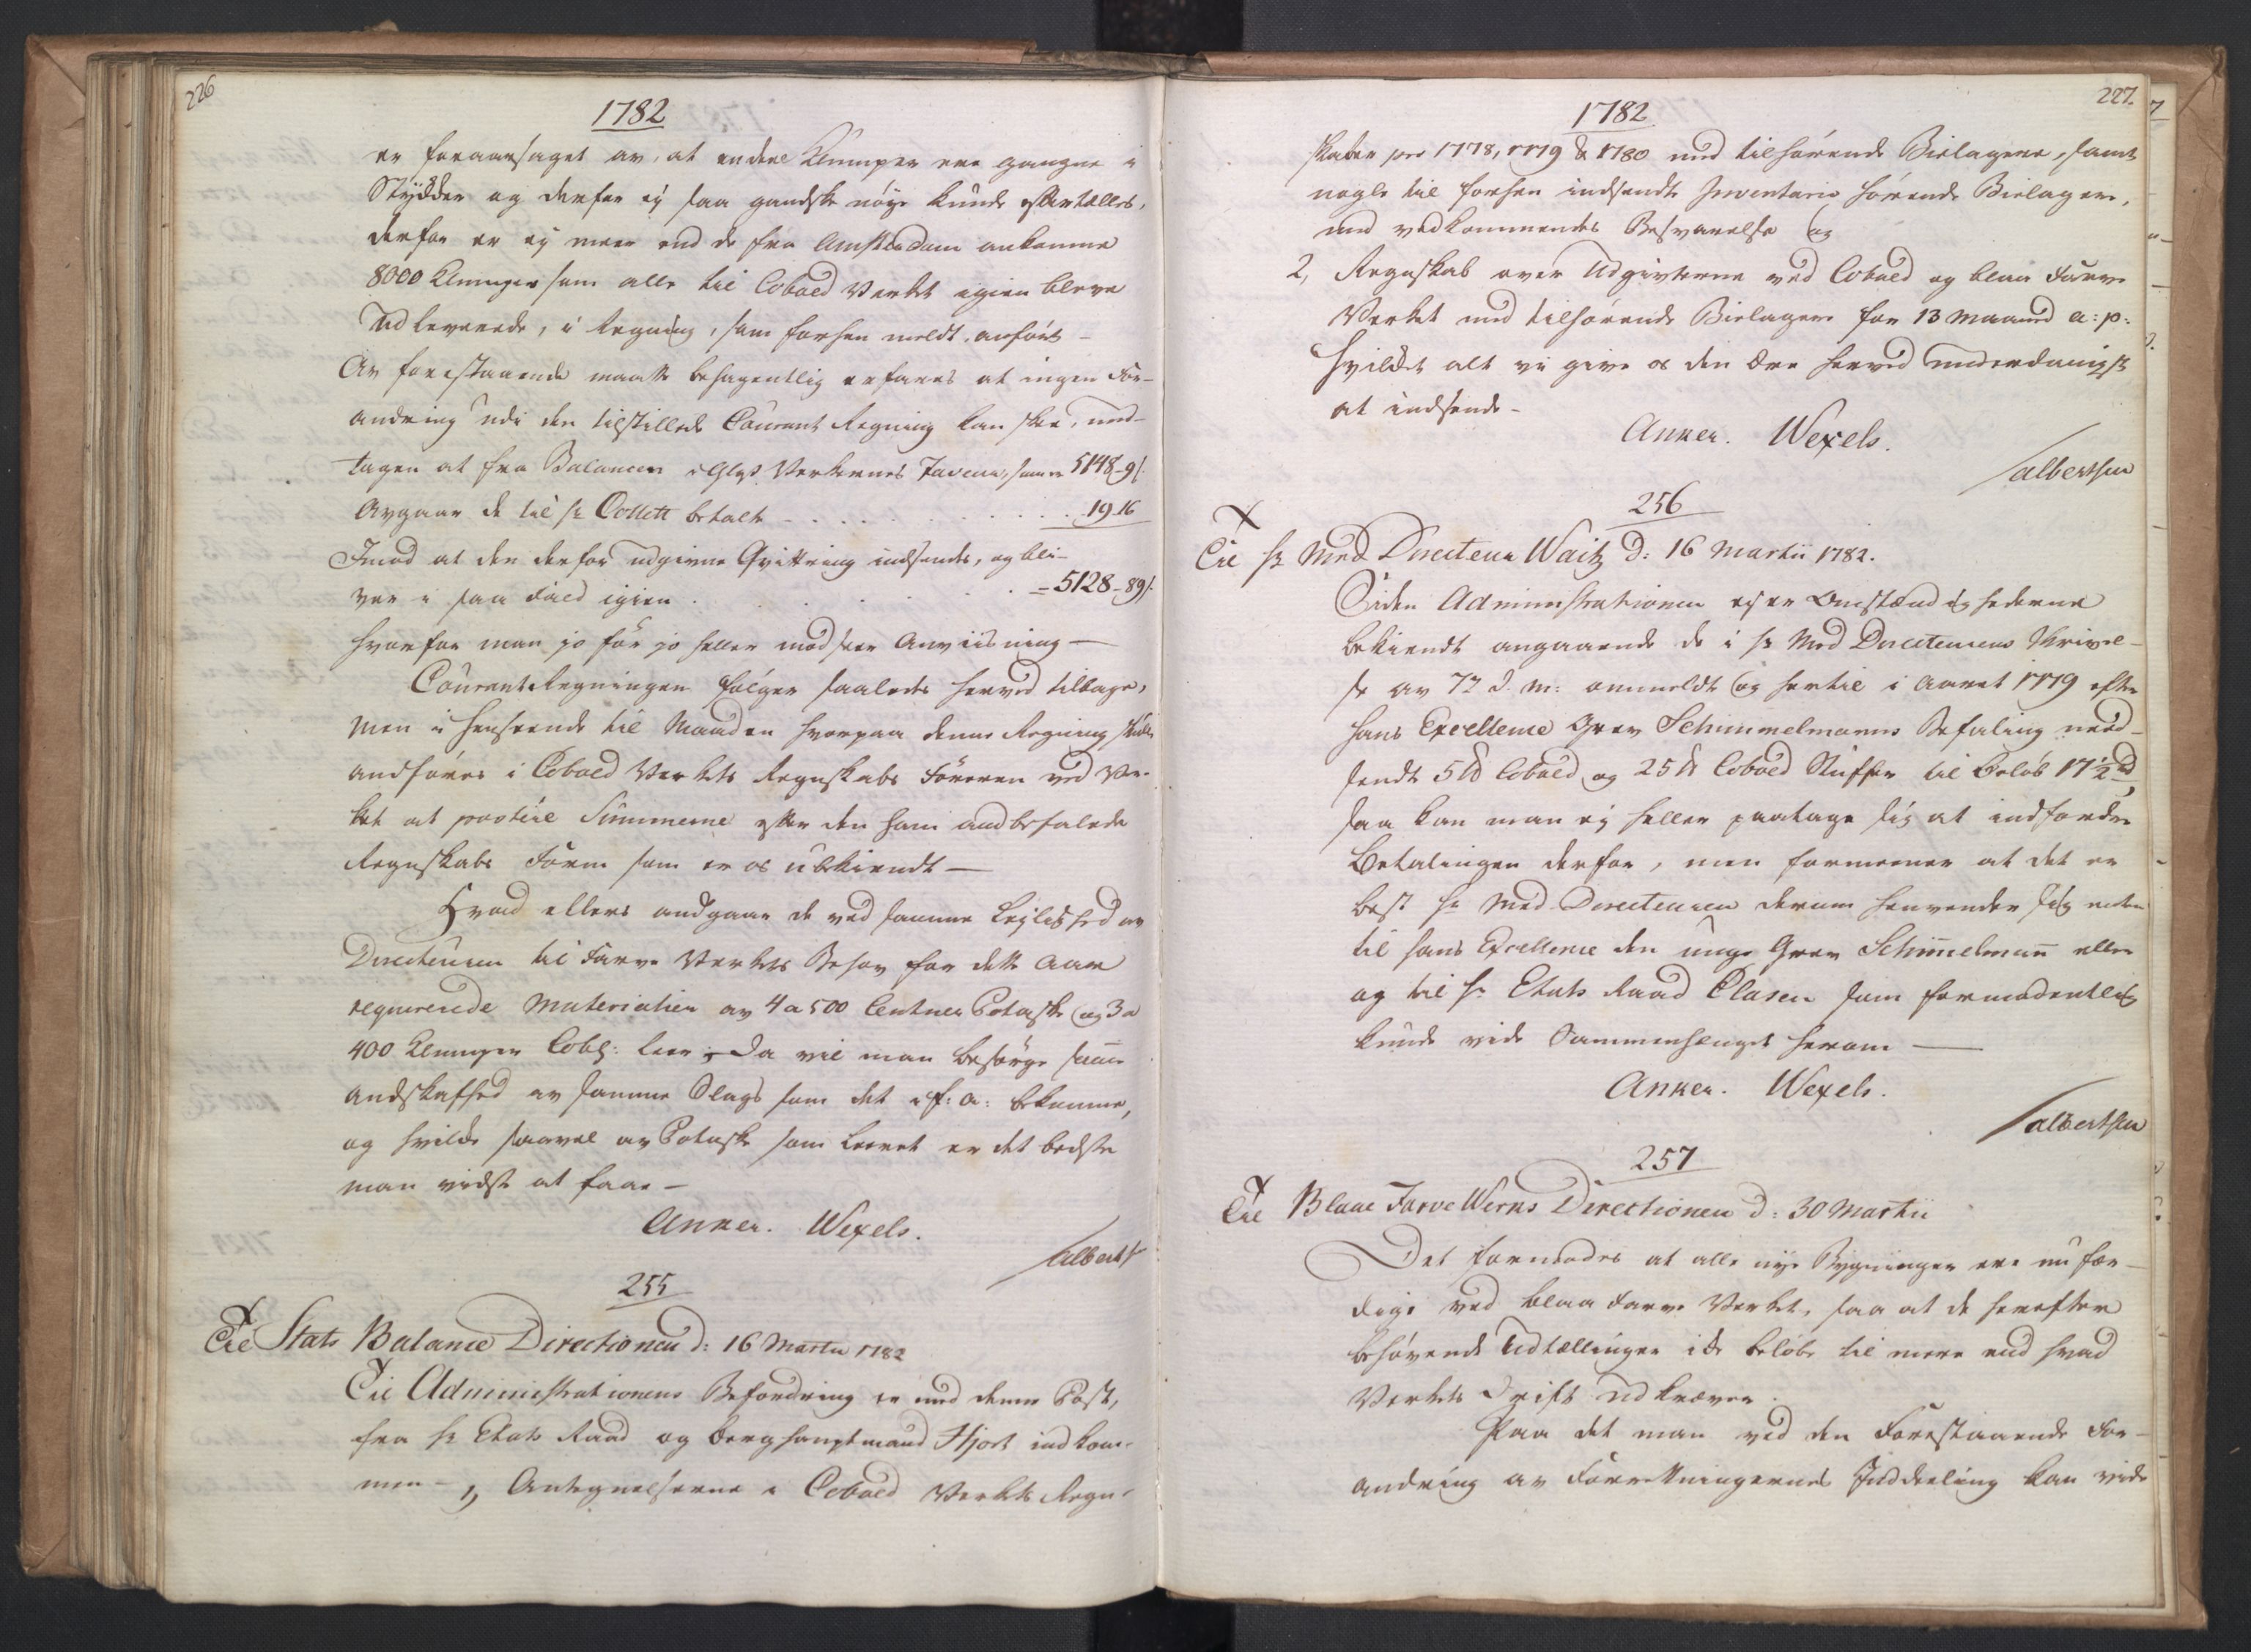 226
1782
er foraarsaget av, at endeel Klumper ere gangne i
Stykker og derfor ey saa gandske nöye kunde eftertælles,
derfor er ey meer end de fra Amsterdam ankomne
8000 Klumper som alle til Cobold Verket igien bleve
udleverede, i Regning, som forhen meldt, anfört –
Av forestaaende maatte behagentlig erfares at ingen For-
andring udi den tilstillede Courant Regning kan skee, und-
tagen at fra Balancen i Glas Verkernes Faveur, som er 5148 - 9 s.
Avgaar de til Hr Collett betalte . . . . . . 19 16
Imod at den derfor udgivne Qvittring indsendes, og bli-
ver i saa Fald igien . . . . . – 5128 - 89 s.
hvorfor man jo för jo heller modseer Anviisning –
Courant Regningen fölger saaledes herved tilbage,
Men i henseende til Maaden hvorpaa denne Regning skulle
andföres i Cobold Verkets Regnskabs Föreren ved Ver-
ket at postére Summerne efter den ham andbefalede
Regnskabs Form som er os ubekiendt –
Hvad ellers andgaar de ved samme Leylighed av
Directeuren til Farve Verkets Behov for dette Aar
requirerede Materialier av 4 a 500 Centner Potaske og 3 a
400 Klumper Cobl: Leer, Da vil man besörge samme
Andskaffed av samme Slags som det i f: a: bekomme,
og hvilke saavel av Potaske som Leeret er det bedste
man vidste at faae –
Anker. Wexels.
/Alberts
255
Til Stats Balance Directionen d: 16 Martii 1782
Til Administrationens Befordring er med denne Post,
fra Hr Etats Raad og Berghauptmand Hjort indkom-
men – 1, Antegnelserne i Cobold Verkets Regn-
227.
1782
skaber pro 1778, 1779 & 1780 med tilhörende Bielagene, samt
nogle til forhen indsendte Inventarie hörende Bielager,
med vedkommendes Besvarelse og
2, Regnskab over Udgivterne ved Cobold og blaae Farve
Verket med tilhörende Bielager for 13 Maaned a: p:
Hvilket alt vi give os den Ære herved underdanigst
at indsende –
Anker. Wexels.
/Albertsen
256
Til Hr Med Directeur Waitz d: 16 Martii 1782.
Siden Administrationen ey er Omstændighederne
bekiendt angaaende de i Hr Med Directeurens Skrivel-
se av 72 d. M: anmeldte og hertil i Aaret 1779 efter
Hans Excellence Grev Schimmelmanns Befaling need-
sendte 5 lb Cobold og 25 lb Cobold Stuffer til Belöb 17 1/2 rd,
saa kan man ey heller paatage sig at indfordre
Betalingen derfor, men formeener at det er
best Hr Med Directeuren derom henvender sig enten
til hans Excellence den unge Grev Schimelman eller
og til Hr Etats Raad Clasen som formodentlig
kunde vide Sammenhenget herom –
Anker. Wexels.
/Albertsen
257
Til Blaae Farve Werks Directionen d: 30 Martii
Det formodes at alle nye Bygninger ere nu fær-
dige ved blaa Farve Verket, saa at de herefter
behövende Udtællinger icke belöbe til mere end hvad
Verkets Drift udkræver.
Paa det man ved den Forestaaende For-
andring av Forretningernes Inddeeling kan vide